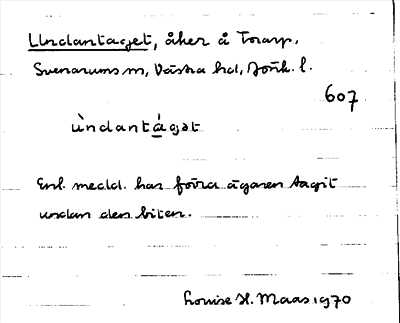 Undantaget, åker å Torarp,
Svenarums sn, Västra hd, Jönk. l.
607
ùndantá̱gət
Enl. medd. har förra ägaren tagit
undan den biten.
Louise H. Maas 1970